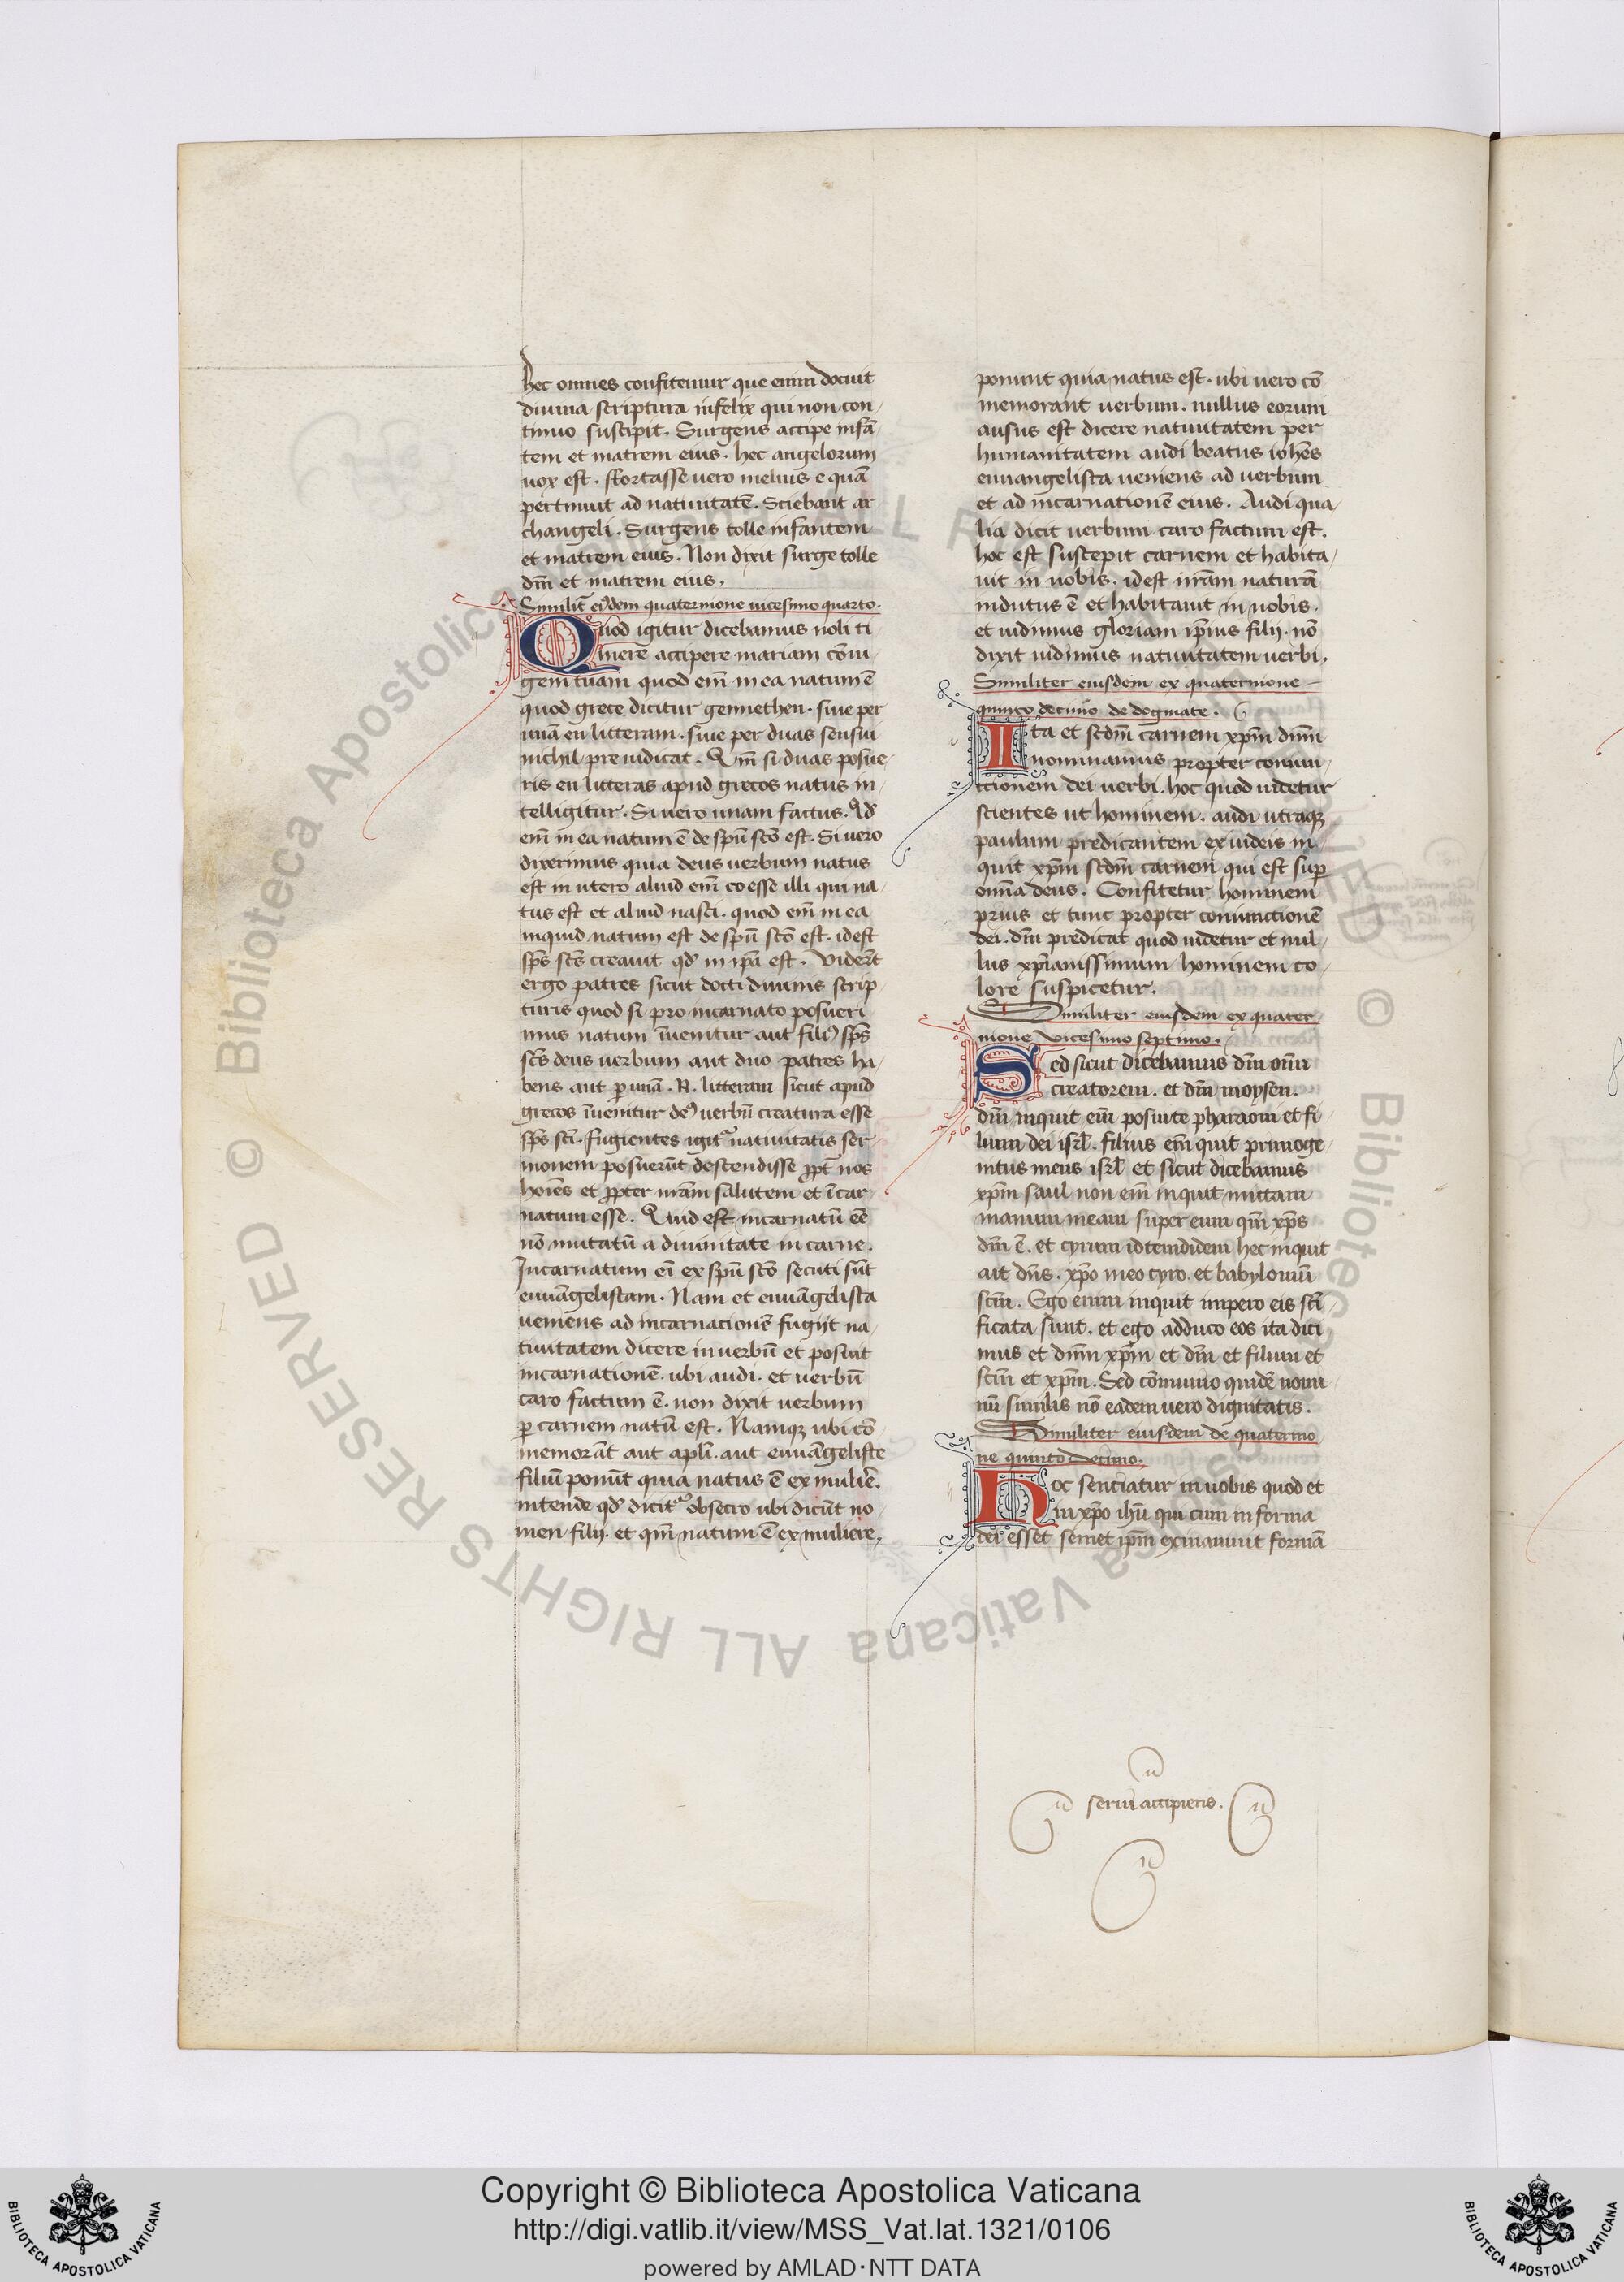 hec omnes confitemur que enim docuit
diuina scriptura infelix qui non con
tinuo suscipit. Surgens accipe infā
tem et matrem eius. hec angelorum
uox est. ffortasse uero melius e quā
pertinuit ad natiuitatē. Sciebant ar
changeli. Surgens tolle infantem
et matrem eius. Non dixit surge tolle
dm̄ et matrem eius.
Similit̄ eiꝰdem quaternione uicesimo quarto.
Quod igitur dicebamus noli ti
merē accipere mariam cōiu
gem tuam quod em̄ in ea natum ē
quod grece dicitur gennethen. siue per
unā en litteram. siue per duas sensui
nichil preiudicat. Qm̄ si duas posue
ris en litteras apud grecos natus in
telligitur. Si uero unam factus. Qd̄
em̄ in ea natum ē de spū sctō est. Si uero
dixerimus quia deus uerbum natus
est in utero aliud em̄ coesse illi qui na
tus est et aliud nasci. quod em̄ in ea
inquid natum est de spū sctō est. idest
sps̄ scts̄ creauit qd̄ in ipā est. Viderūt
ergo patres sicut docti diuinis scrip
turis quod si pro incarnato posueri
mus natum īuenitur aut filiꝰ sps̄
scts̄ deus uerbum aut duo patres ha
bens aut ꝑ unā. N. litteram sicut apud
grecos īuenitur deꝰ uerbū creatura esse
sps̄ scti. fugientes igit᷑ natiuitatis ser
monem posuerūt descendisse ꝓpt̄ nos
hoīes et ꝓpter nrām salutem et īcar
natum esse. Quid est incarnatū eē
nō mutatū a diuinitate in carne.
Incarnatum eī ex spū sctō secuti sūt
euuāgelistam. Nam et euuāgelista
ueniens ad incarnacionē fugijt na
tiuitatem dicere in uerbū et posuit
incarnationē. ubi audi. et uerbū
caro factum ē. non dixit uerbum
ꝑ carnem natū est. Namqꝫ ubi cō
memorāt aut apli. aut euuāgeliste
filiū ponūt quia natus ē ex muliē.
intende qd̄ dicit᷑ obsecro ubi dicūt no
men filij. et qm̄ natum ē ex muliere.
ponunt quia natus est. ubi uero cō
memorant uerbum. nullus eorum
ausus est dicere natiuitatem per
humanitatem audi beatus iohēs
euuangelista ueniens ad uerbum
et ad incarnationē eius. Audi qua
lia dicit uerbum caro factum est.
hoc est suscepit carnem et habita
uit in nobis. idest nrām naturā
indutus ē et habitauit in nobis.
et uidimus gloriam ipīus filij. nō
dixit uidimus natiuitatem uerbi.
Similiter eiusdem ex quaternione
quinto decimo de dogmate.
Ita et scdm̄ carnem xpm̄ dnm̄
nominamus propter coniun
ctionem dei uerbi. hoc quod uidetur
scientes ut hominem. audi utraqꝫ
paulum predicantem ex iudeis in
quit xpm̄ scdm̄ carnem qui est suꝑ
omīa deus. Confitetur hominem
prius et tunc propter coniunctionē
dei. dm̄ predicat quod uidetur et nul
lus xp̄ianissimum hominem co
lore suspicetur.
Similiter eiusdem ex quater
nione vicesimo septimo.
Sed sicut dicebamus dm̄ om̄
creatorem. et dm̄ moysen.
dm̄ inquit em̄ posui te pharaoni et fi
lium dei isrl̄. filius em̄ quit primoge
nitus meus isrl̄ et sicut dicebamus
xpm̄ saul non em̄ inquit mittam
manum meam super eum qm̄ xps̄
dm̄ ē. et cyrum idtemdidem hec inquit
ait dn̄s. xpō meo cyro. et babylonū
scm̄. Ego enim inquit impero eis scti
ficata sunt. et ego adduco eos ita dici
mus et dnm̄ xpm̄ et dm̄ et filium et
sctm̄ et xpm̄. Sed cōmunio quidē nomi
nū similis nō eadem uero dignitatis.
Similiter eiusdem de quaternio
ne quinto decimo.
Hoc senciatur in uobis quod et
in xpō ihū qui cum in forma
dei esset semet ipm̄ exinaniuit formā
serui accipiens.
Copyright © Biblioteca Apostolica Vaticana
http://digi.vatlib.it/view/MSS_Vat.lat.1321/0106
powered by AMLAD·NTT DATA
BIBLIOTECA APOSTOLICA VATICANA
BIBLIOTECA APOSTOLICA VATICANA
© Biblioteca Apostolica Vaticana ALL RIGHTS RESERVED